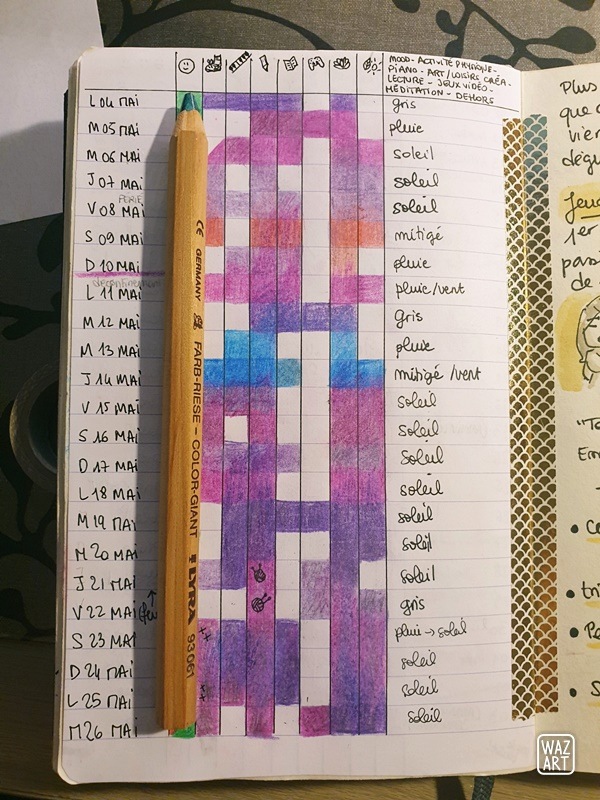 MOOD - ACTIVITÉ PHYSIQUE -
PIANO - ART/LOISIRS CRÉA -
LECTURE - JEUX VIDÉO -
MÉDITATION - DEHORS
L 04 MAI gris
M 05 MAI pluie
M 06 MAI soleil
J 07 MAI soleil
FÉRIÉ
V 08 MAI soleil
S 09 MAI mitigé
D 10 MAI pluie
déconfinement
L 11 MAI pluie/vent
M 12 MAI gris
M 13 MAI pluie
J 14 MAI mitigé/vent
V 15 MAI soleil
S 16 MAI soleil
D 17 MAI soleil
L 18 MAI soleil
M 19 MAI soleil
M 20 MAI soleil
J 21 MAI soleil
V 22 MAI gris
S 23 MAI pluie → soleil
D 24 MAI soleil
L 25 MAI soleil
M 26 MAI soleil
CE GERMANY FARB-RIESE - COLOR-GIANT LYRA 93 061
Plus
que
vien
1er
de
WAZ
ART